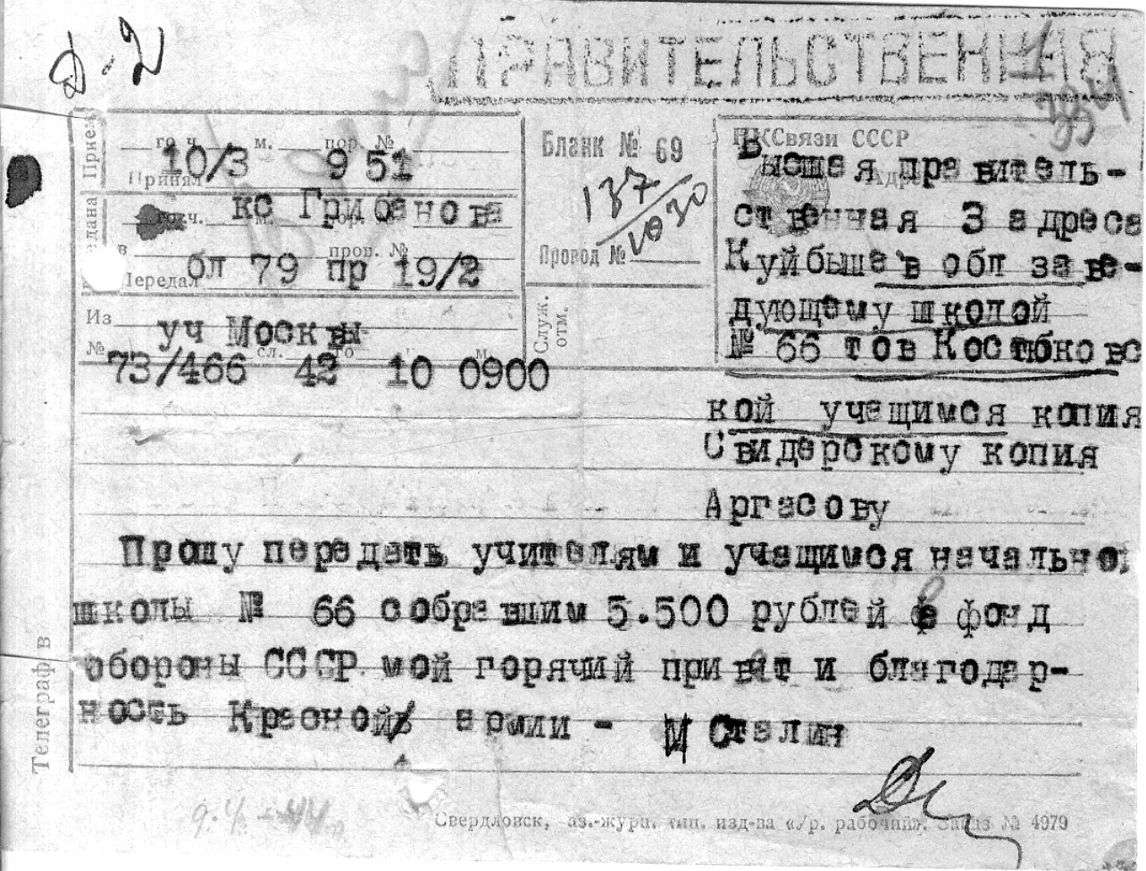 Д-2
ПРАВИТЕЛЬСТВЕННАЯ
Прием
го ч. м. пор. №
10/3 9 51
Принял
кс Грифанова
в пров. №
бл 79 пр 19/2
Передал
Из уч Москвы
№ сл. го ч. м.
73/466 42 10 0900
Бланк № 69
137/1030
Провод №
Служ. отм.
НКСвязи СССР
Высшая правитель-
ственная 3 адреса
Куйбышев обл заве-
дующему школой
№ 66 тов Костюковс
кой учащимся копия
Свидерскому копия
Аргасову
Прошу передать учителям и учащимся начально
школы № 66 собравшим 5.500 рублей в фонд
обороны СССР мой горячий привет и благодар-
ность Красной армии - И Сталин
Телеграф в
9.4-44
Свердловск, тип. изд-ва «Ур. рабочий». Заказ № 4979